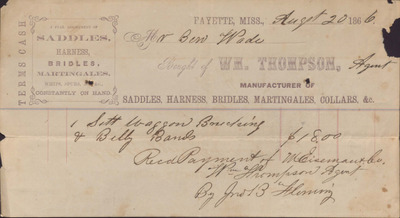 TERMS CASH
A GOOD ASSORTMENT OF
SADDLES,
HARNESS,
BRIDLES,
MARTINGALES,
CONSTANTLY ON HAND.
FAYETTE, MISS., Augst 20 1866.
Mr Ben Wade
Bought of WM. THOMPSON, Agent
MANUFACTURER OF
SADDLES, HARNESS, BRIDLES, MARTINGALES, COLLARS, &c.
1 Sett Waggon Breeching
& Belly Bands $18.00
Recd Payment of
Wm Thompson Agent
By Jno B Fleming